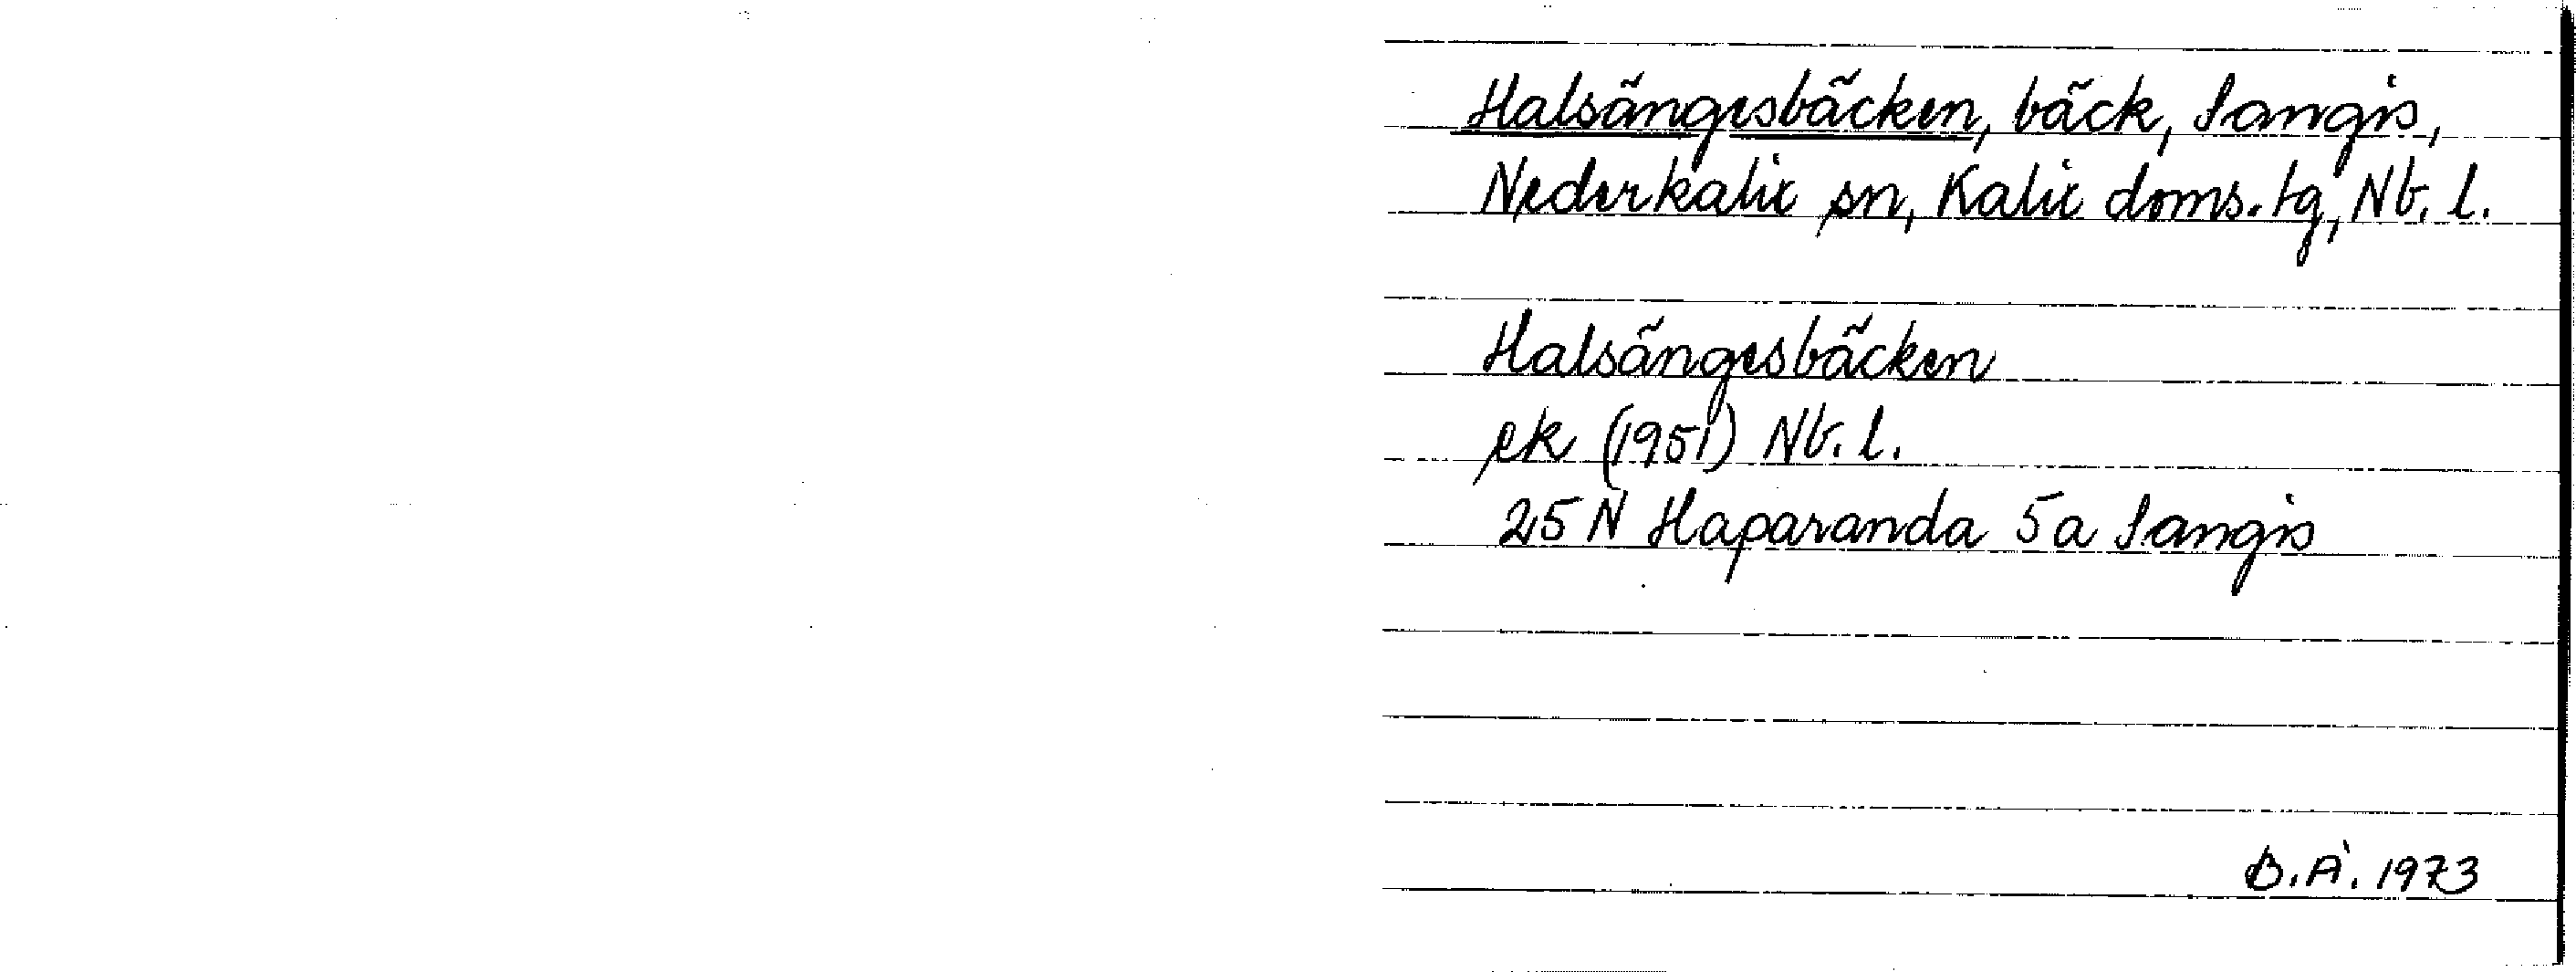 Halsängesbäcken, bäck, Sangis,
Nederkalix sn, Kalix doms.tg, Nb. l.
Halsängesbäcken
ek (1951) Nb. l.
25 N Haparanda 5a Sangis
B.Å. 1973